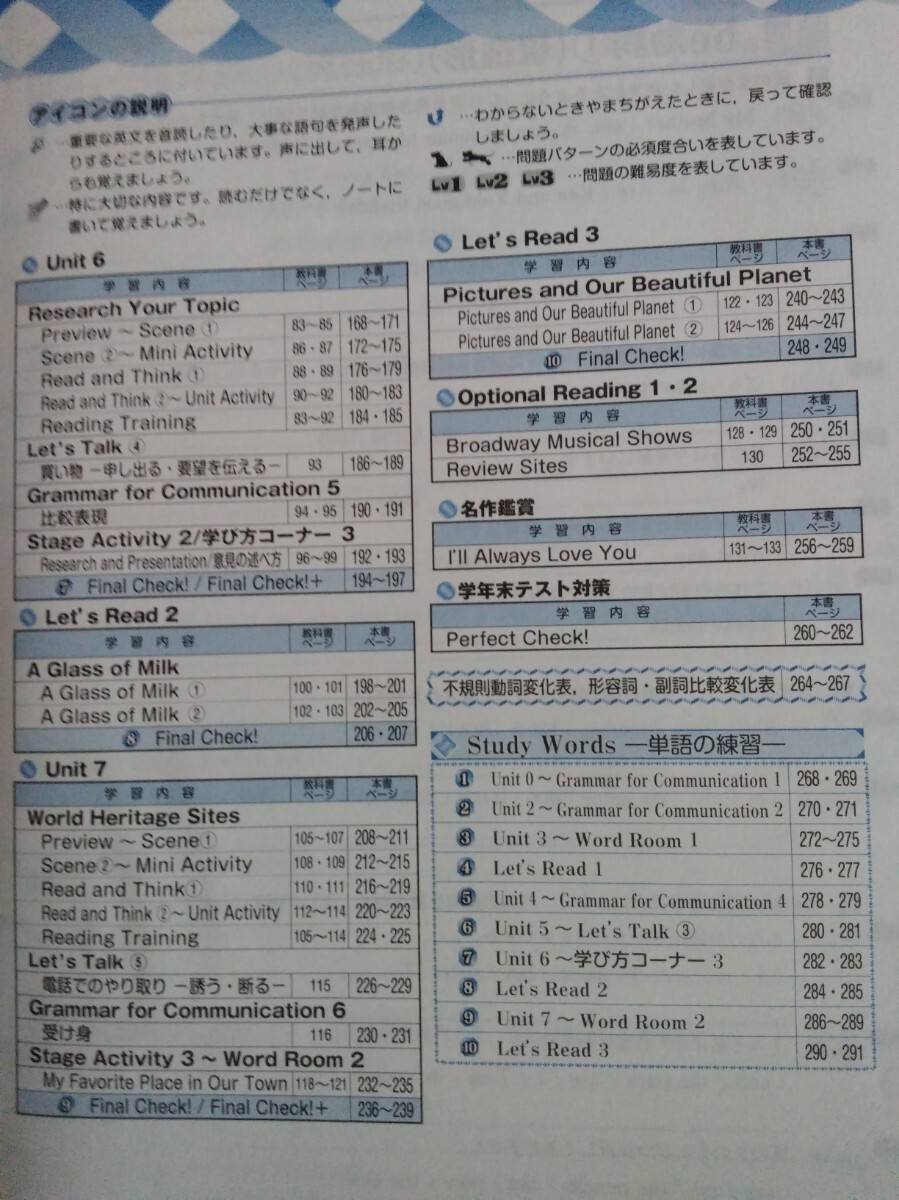 アイコンの説明
…重要な英文を音読したり，大事な語句を発声した
りするところに付いています。声に出して，耳か
らも覚えましょう。
…特に大切な内容です。読むだけでなく，ノートに
書いて覚えましょう。
…わからないときやまちがえたときに，戻って確認
しましょう。
…問題パターンの必須度合いを表しています。
Lv1 Lv2 Lv3 …問題の難易度を表しています。
Unit 6
学習内容 教科書ページ 本書ページ
Research Your Topic
Preview ～ Scene ① 83～85 168～171
Scene ②～ Mini Activity 86・87 172～175
Read and Think ① 88・89 176～179
Read and Think ②～ Unit Activity 90～92 180～183
Reading Training 83～92 184・185
Let's Talk ④
買い物 －申し出る・要望を伝える－ 93 186～189
Grammar for Communication 5
比較表現 94・95 190・191
Stage Activity 2/学び方コーナー 3
Research and Presentation/意見の述べ方 96～99 192・193
❼ Final Check! / Final Check!+ 194～197
Let's Read 2
学習内容 教科書ページ 本書ページ
A Glass of Milk
A Glass of Milk ① 100・101 198～201
A Glass of Milk ② 102・103 202～205
❽ Final Check! 206・207
Unit 7
学習内容 教科書ページ 本書ページ
World Heritage Sites
Preview ～ Scene① 105～107 208～211
Scene②～ Mini Activity 108・109 212～215
Read and Think① 110・111 216～219
Read and Think ②～ Unit Activity 112～114 220～223
Reading Training 105～114 224・225
Let's Talk ⑤
電話でのやり取り －誘う・断る－ 115 226～229
Grammar for Communication 6
受け身 116 230・231
Stage Activity 3 ～ Word Room 2
My Favorite Place in Our Town 118～121 232～235
❾ Final Check! / Final Check!+ 236～239
Let's Read 3
学習内容 教科書ページ 本書ページ
Pictures and Our Beautiful Planet
Pictures and Our Beautiful Planet ① 122・123 240～243
Pictures and Our Beautiful Planet ② 124～126 244～247
❿ Final Check! 248・249
Optional Reading 1・2
学習内容 教科書ページ 本書ページ
Broadway Musical Shows 128・129 250・251
Review Sites 130 252～255
名作鑑賞
学習内容 教科書ページ 本書ページ
I'll Always Love You 131～133 256～259
学年末テスト対策
学習内容 本書ページ
Perfect Check! 260～262
不規則動詞変化表，形容詞・副詞比較変化表 264～267
Study Words ―単語の練習―
❶ Unit 0～Grammar for Communication 1 268・269
❷ Unit 2～Grammar for Communication 2 270・271
❸ Unit 3～Word Room 1 272～275
❹ Let's Read 1 276・277
❺ Unit 4～Grammar for Communication 4 278・279
❻ Unit 5～Let's Talk ③ 280・281
❼ Unit 6～学び方コーナー 3 282・283
❽ Let's Read 2 284・285
❾ Unit 7～Word Room 2 286～289
❿ Let's Read 3 290・291